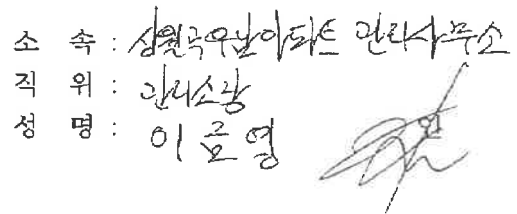 소 속 : 상월곡우남아파트 관리사무소
직 위 : 관리소장
성 명 : 이금영 인